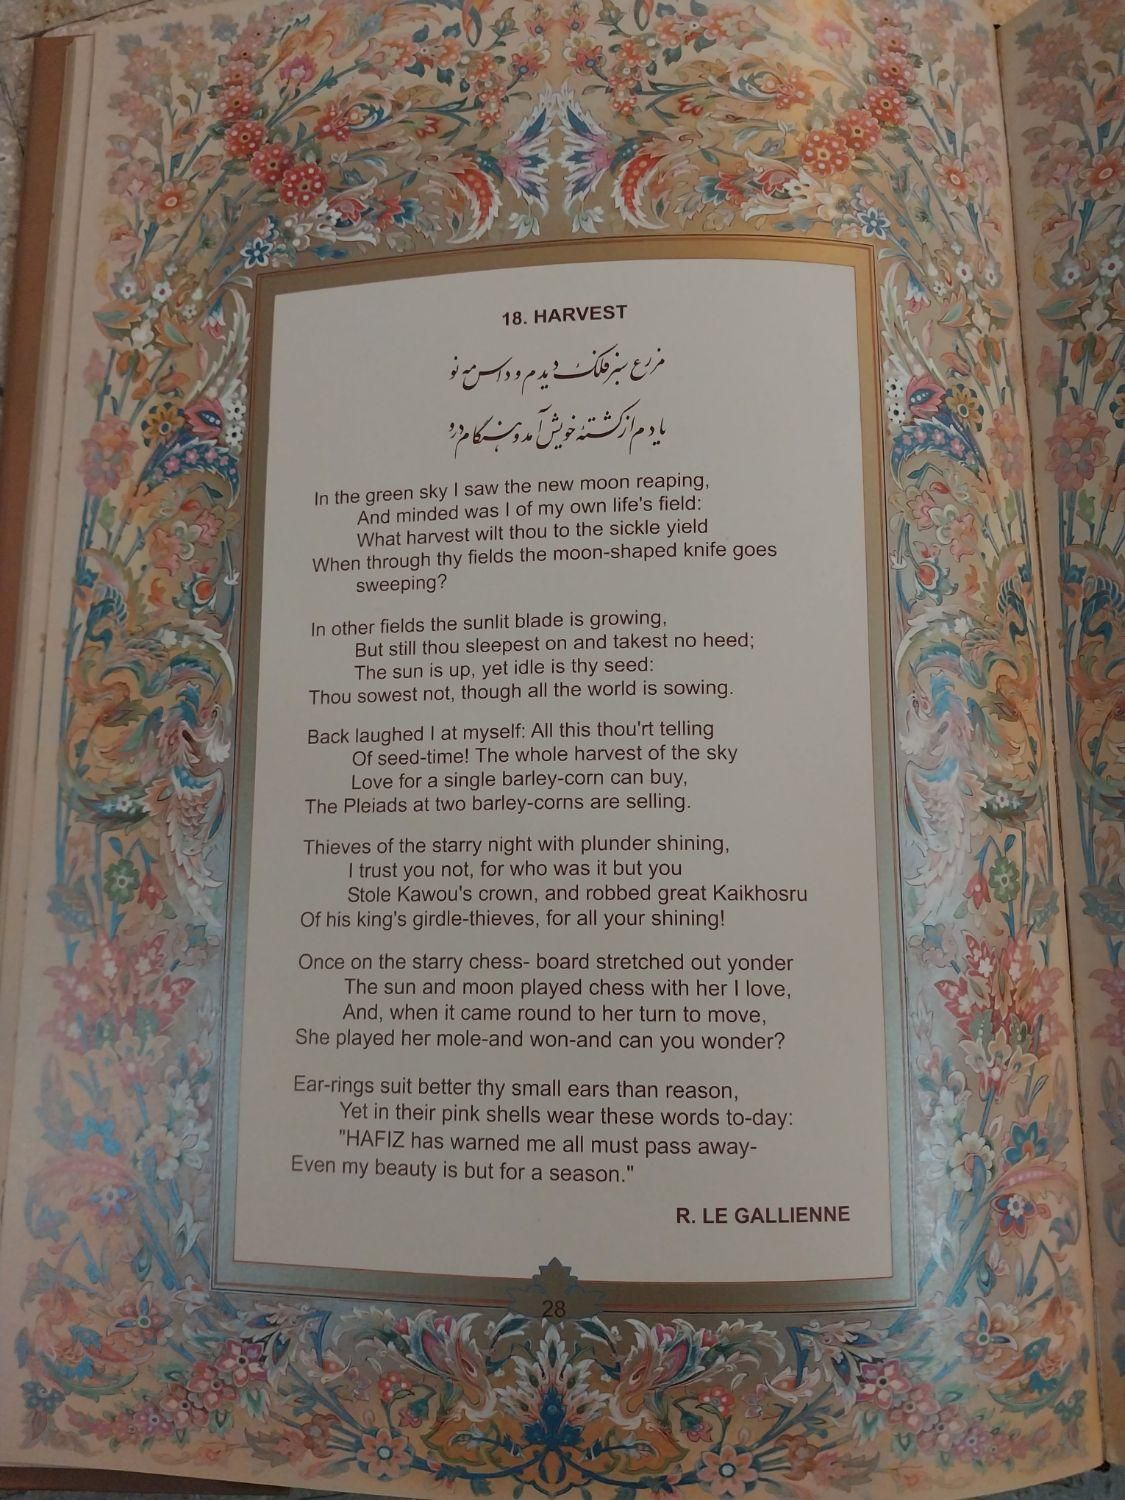 18. HARVEST
مزرع سبز فلک دیدم و داس مه نو
یادم از کشتهٔ خویش آمد و هنگام درو
In the green sky I saw the new moon reaping,
And minded was I of my own life's field:
What harvest wilt thou to the sickle yield
When through thy fields the moon-shaped knife goes
sweeping?
In other fields the sunlit blade is growing,
But still thou sleepest on and takest no heed;
The sun is up, yet idle is thy seed:
Thou sowest not, though all the world is sowing.
Back laughed I at myself: All this thou'rt telling
Of seed-time! The whole harvest of the sky
Love for a single barley-corn can buy,
The Pleiads at two barley-corns are selling.
Thieves of the starry night with plunder shining,
I trust you not, for who was it but you
Stole Kawou's crown, and robbed great Kaikhosru
Of his king's girdle-thieves, for all your shining!
Once on the starry chess- board stretched out yonder
The sun and moon played chess with her I love,
And, when it came round to her turn to move,
She played her mole-and won-and can you wonder?
Ear-rings suit better thy small ears than reason,
Yet in their pink shells wear these words to-day:
"HAFIZ has warned me all must pass away-
Even my beauty is but for a season."
R. LE GALLIENNE
28